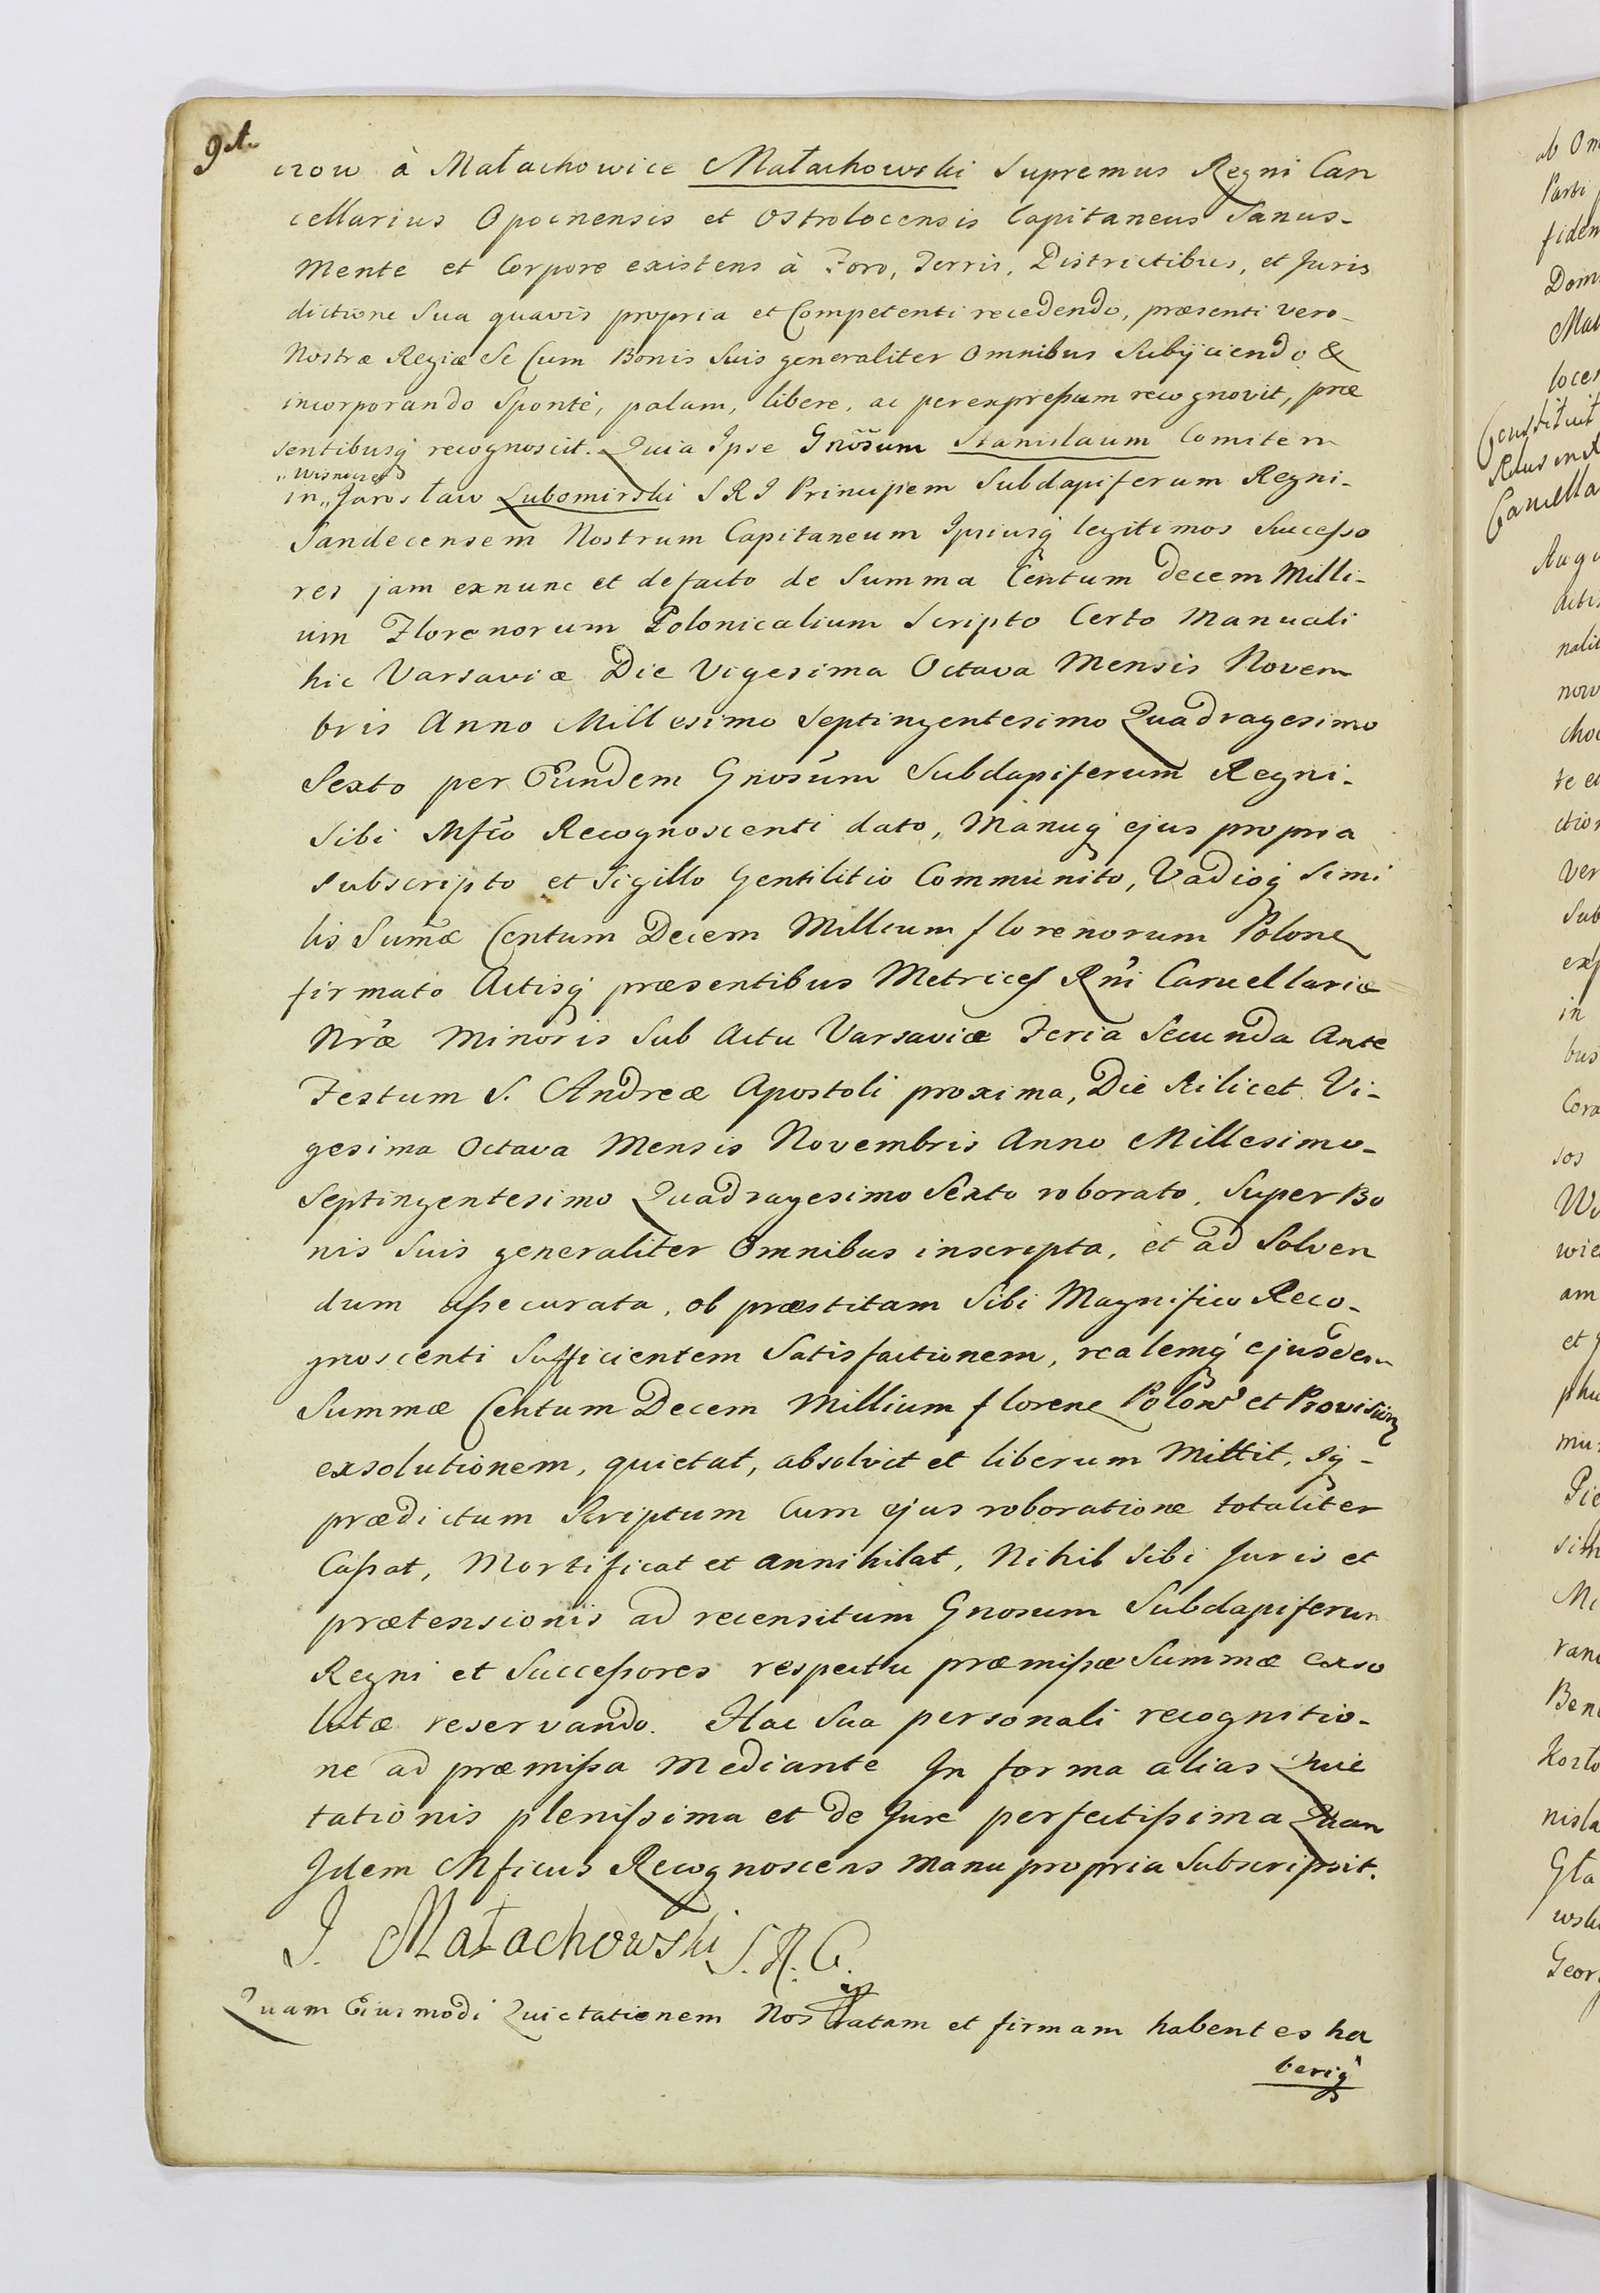 94.
czow à Małachowice Małachowski Supremus Regni Can
cellarius Opocnensis et Ostrolocensis Capitaneus Sanus-
Mente et Corpore existens à Foro, Terris, Districtibus, et Juris
dictione Sua quavis propria et Competenti recedendo, præsenti vero-
Nostræ Regiæ Se Cum Bonis Suis generaliter Omnibus Subijciendo &
incorporando Spontè, palam, libere, ac per expreßum recognovit, præ
sentibusq recognoscit. Quia Ipse Gnõsum Stanislaum Comitem
„Wisnicz et
in„ Jarosław Lubomirski S R I Principem Subdapiferum Regni-
Sandecensem Nostrum Capitaneum Ipsiusq legitimos Succeßo
res jam exnunc et defacto de Summa Centum decem Milli-
um Florenorum Polonicalium Scripto Certo Manuali
hic Varsaviæ Die Vigesima Octava Mensis Novem
bris Anno Millesimo Septingentesimo Quadragesimo
Sexto per Eundem Gnosum Subdapiferum Regni-
Sibi Mfco Recognoscenti dato, Manuq ejus propria
Subscripto et Sigillo Gentilitio Communito, Vadioq Simi
lis Sumæ Centum Decem Millium florenorum Polone
firmato Actisq præsentibus Metrices Rni Cancellariæ
Nræ Minoris Sub Actu Varsaviæ Feria Secunda Ante
Festum S. Andreæ Apostoli proxima, Die Scilicet Vi-
gesima Octava Mensis Novembris Anno Millesimo-
Septingentesimo Quadragesimo Sexto roborato, Super Bo
nis Suis generaliter Omnibus inscripta, et ad Solven
dum aßecurata, ob præstitam Sibi Magnifico Reco-
gnoscenti Sufficientem Satisfactionem, realemq ejusdem
Summæ Centum Decem Millium florene Polon et Provision
exsolutionem, quietat, absolvit et liberum Mittit, Iq-
prædictum Scriptum Cum ejus roboratione totaliter
Caßat, Mortificat et annihilat, Nihil Sibi Juris et
prætensionis ad recensitum Gnosum Subdapiferum
Regni et Succeßores respectu præmißæ Summæ exso
lutæ reservando. Hac Sua personali recognitio-
ne ad præmißa Mediante In forma alias Quie
tationis pleniſsima et de Jure perfectißima Quam
Idem Mficus Recognoscens manu propria Subscripsit.
J. Małachowski S. R. C.
Quam Eiusmodi Quietationem Nos ratam et firmam habentes ha
beriq
ab Om
Parti
fidem
Dom
Mał
locen
Constituit
Cancella
Augu
Actis
nalit
now
choc
te et
ction
Ver
Sub
exp
in
bus
Cora
sos
Wi
wie
am
et
mu
Pie
sim
Mi
rand
Bene
Korto
nisla
Gła
wski
Geor